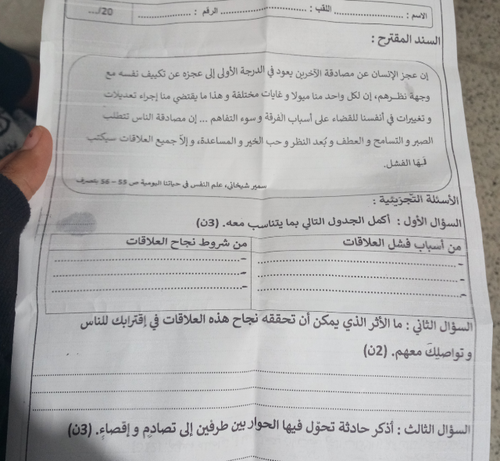 الاسم : .................. اللقب : .................. الرقم : .................. .../20
السند المقترح :
إن عجز الإنسان عن مصادقة الآخرين يعود في الدرجة الأولى إلى عجزه عن تكييف نفسه مع
وجهة نظرهم، إن لكل واحد منا ميولا و غايات مختلفة و هذا ما يقتضي منا إجراء تعديلات
و تغييرات في أنفسنا للقضاء على أسباب الفرقة و سوء التفاهم ... إن مصادقة الناس تتطلب
الصبر و التسامح و العطف و بُعد النظر و حب الخير و المساعدة، و إلاّ جميع العلاقات سيكتب
فيها الفشل.
سمير شيخاني، علم النفس في حياتنا اليومية ص 53 – 56 بتصرف
الأسئلة التجزيئية :
السؤال الأول : أكمل الجدول التالي بما يتناسب معه. (3ن)
من أسباب فشل العلاقات من شروط نجاح العلاقات
-.................. -..................
-.................. -..................
-.................. -..................
السؤال الثاني : ما الأثر الذي يمكن أن تحققه نجاح هذه العلاقات في إقترابك للناس
و تواصلِكَ معهم. (2ن)
..................
..................
..................
السؤال الثالث : أذكر حادثة تحوّل فيها الحوار بين طرفين إلى تصادمٍ و إقصاءٍ. (3ن)
..................